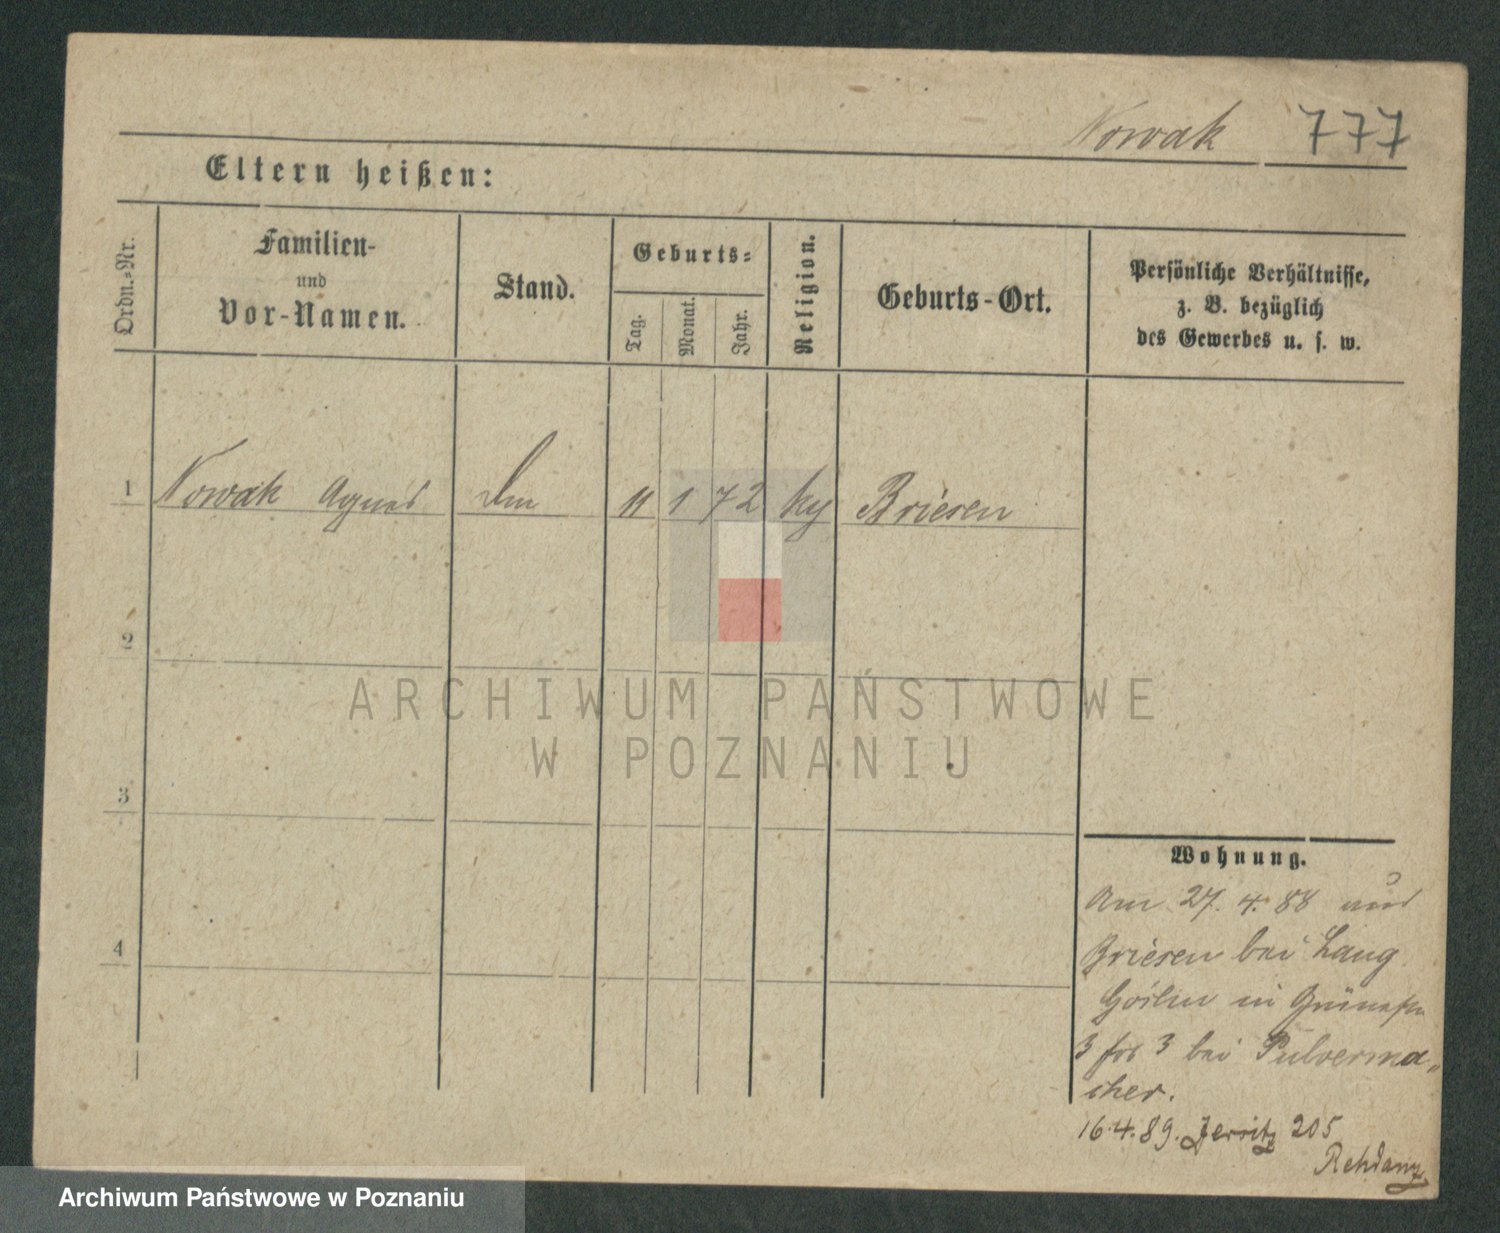 Nowak 777
Eltern heißen:
Ordn.-Nr.
Familien-
und
Vor-Namen.
Stand.
Geburts-
Tag.
Monat.
Jahr.
Religion.
Geburts-Ort.
Persönliche Verhältnisse,
z. B. bezüglich
des Gewerbes u. s. w.
1 Nowak Agnes 11 1 72 Briesen
2
3
4
ARCHIWUM PAŃSTWOWE
W POZNANIU
Wohnung.
Am 27. 4. 88 aus
Briesen bei Lang
Goslin in
3 bei Pulverma-
cher.
16.4.89. Jersitz 205
Rehdanz
Archiwum Państwowe w Poznaniu